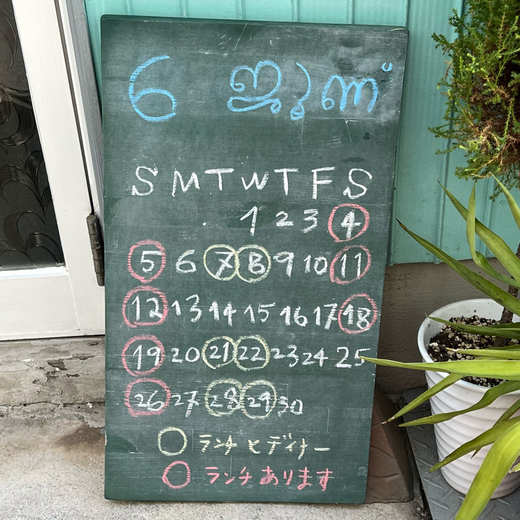 6 ജൂണ്
S M T W T F S
1 2 3 4
5 6 7 8 9 10 11
12 13 14 15 16 17 18
19 20 21 22 23 24 25
26 27 28 29 30
ランチとディナー
ランチあります